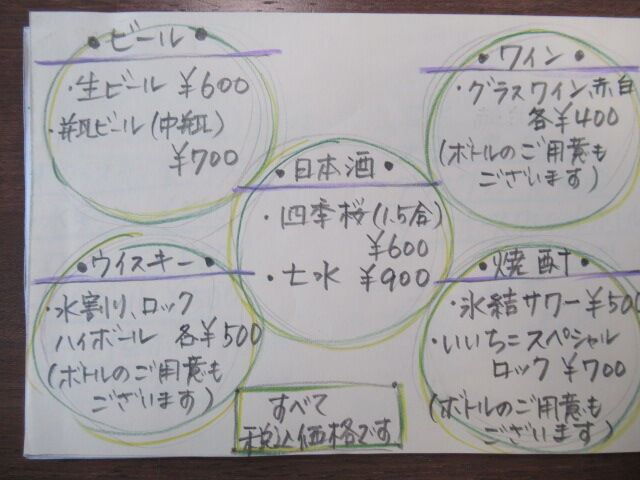 ・ビール・
・生ビール ¥600
・瓶ビール(中瓶)
¥700
・ワイン・
・グラスワイン、赤、白
各¥400
(ボトルのご用意も
ございます)
・日本酒・
・四季桜(1.5合)
¥600
・七水 ¥900
・ウイスキー・
・水割り、ロック
ハイボール 各¥500
(ボトルのご用意も
ございます)
・焼酎・
・氷結サワー ¥500
・いいちこスペシャル
ロック ¥700
(ボトルのご用意も
ございます)
すべて
税込価格です